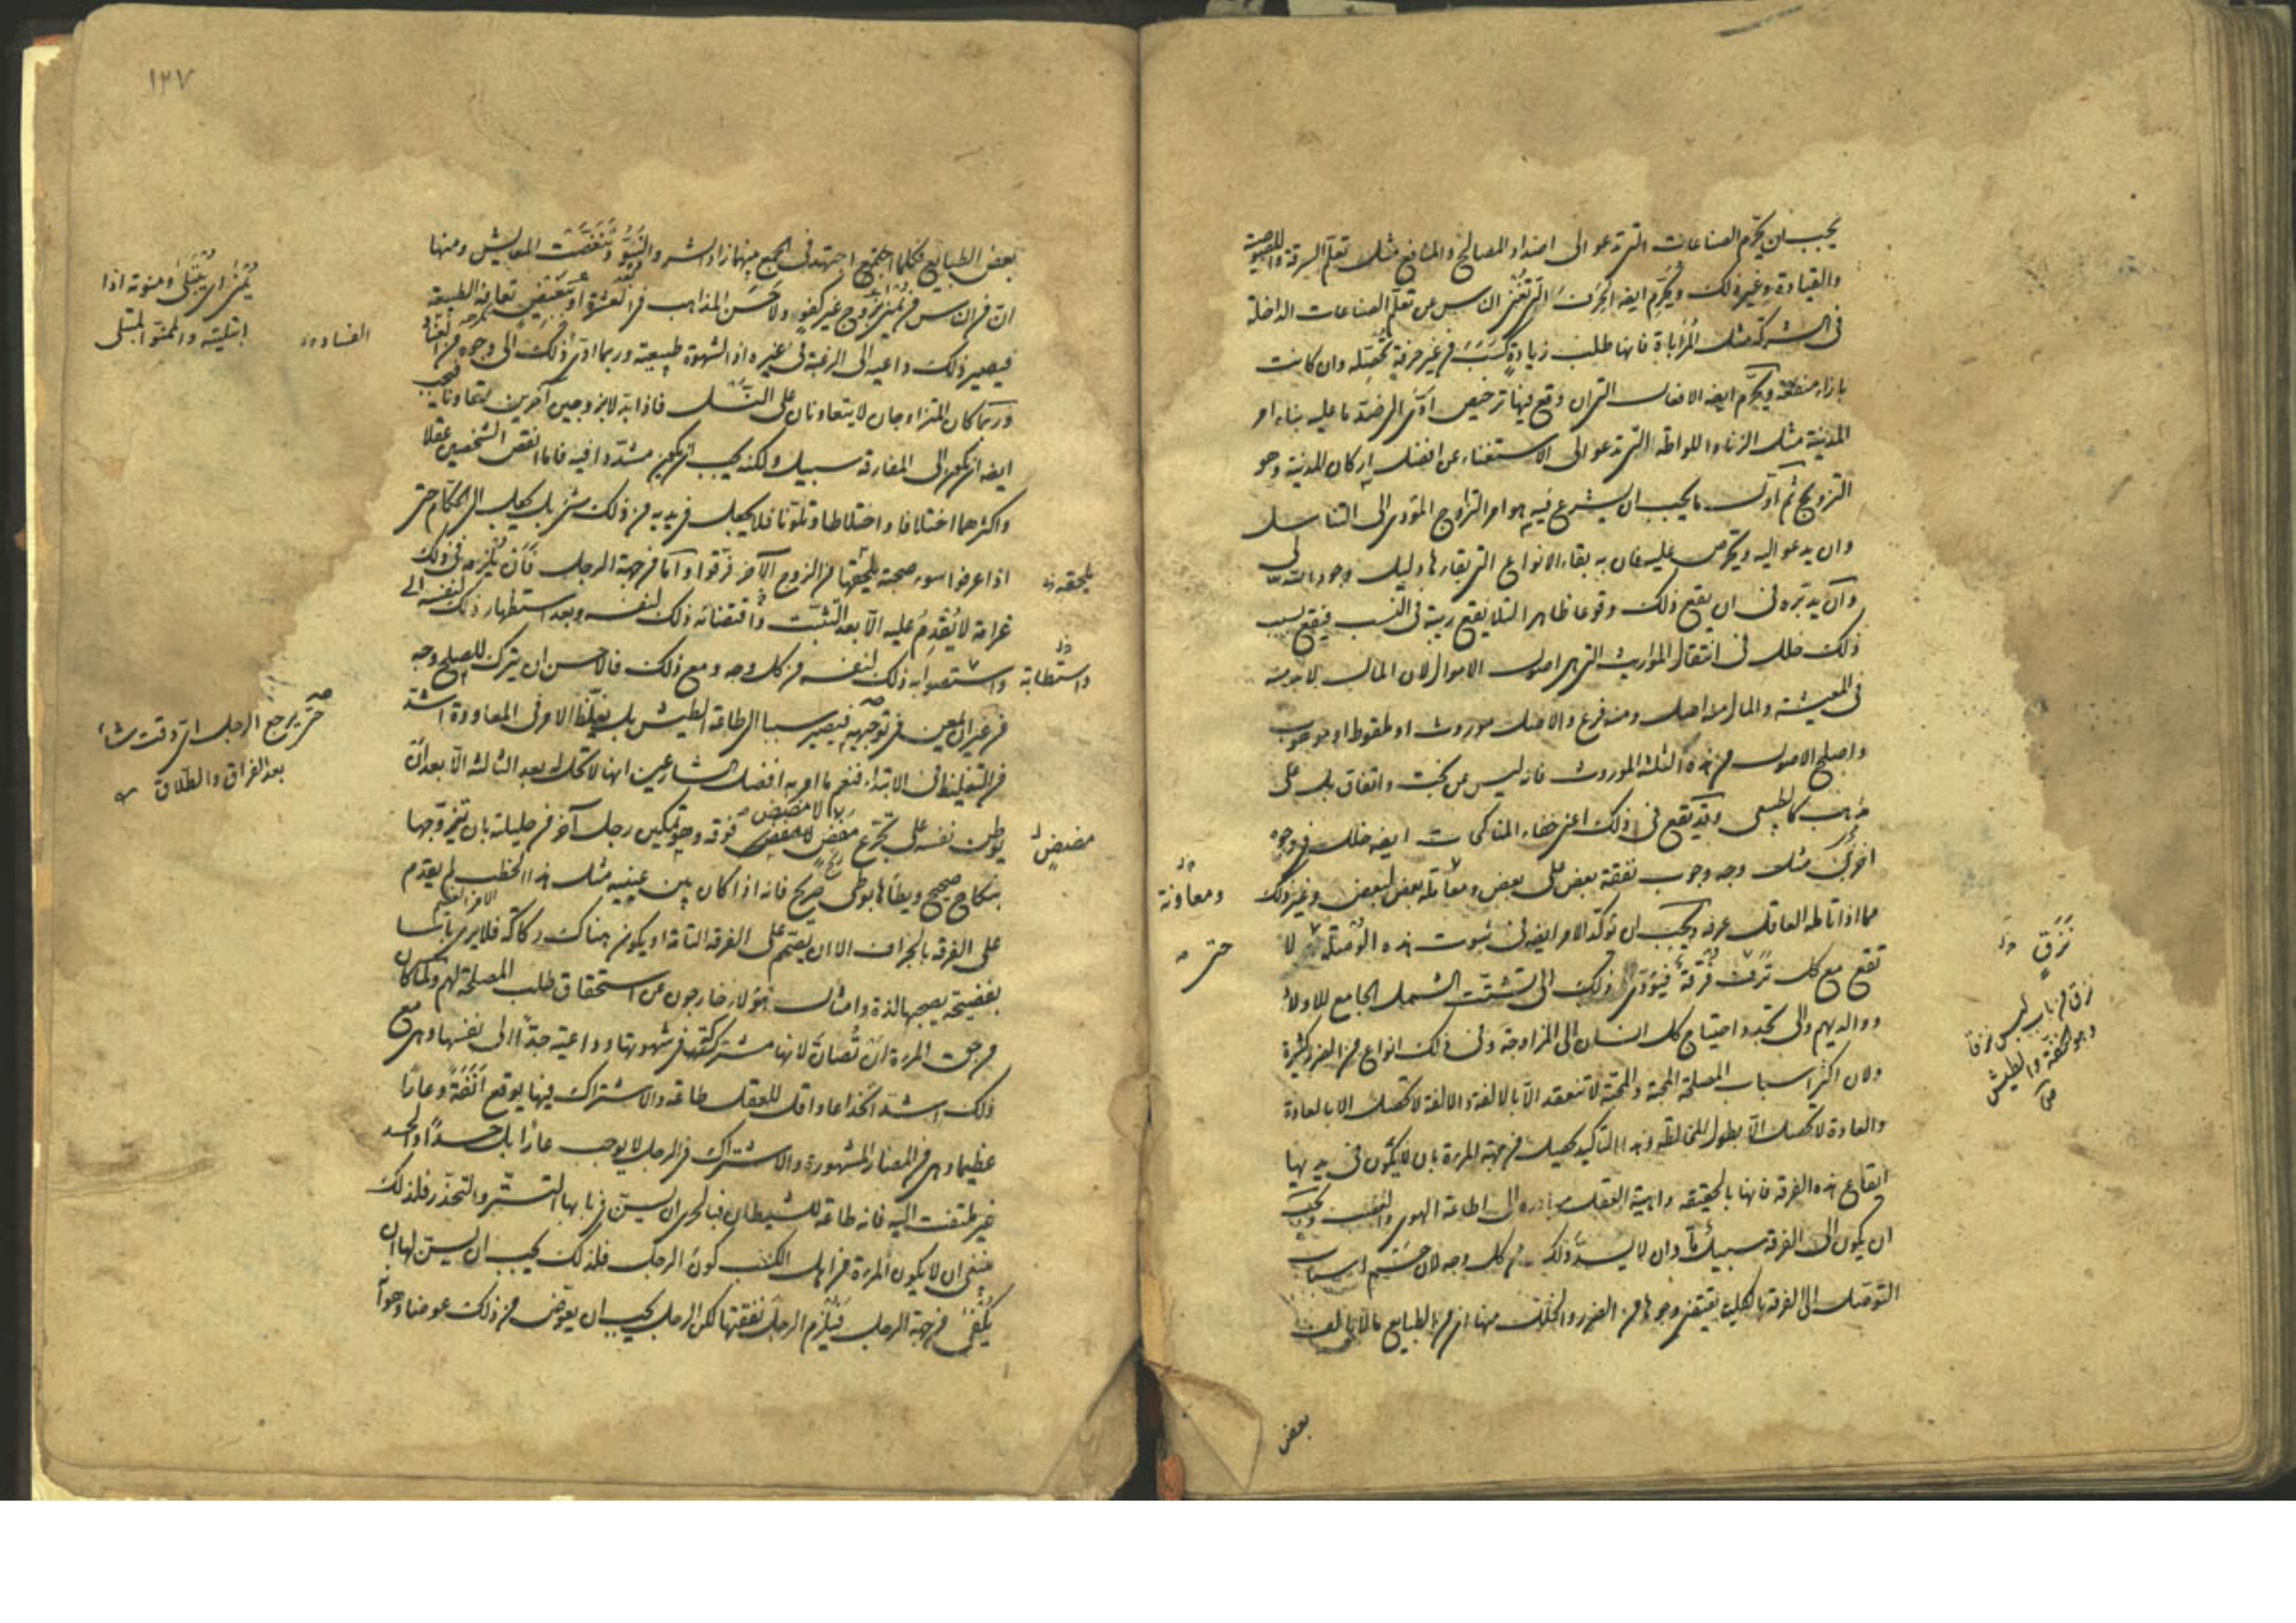 يجب ان يحرّم الصناعات التى تدعو الى اضداد المصالح والمنافع مثل تعلّم السرقة واللصوصية
والقيادة وغير ذلك ويحرّم ايضا الحِرَف التى تغنى الناس عن تعلّم الصناعات الداخلة
فى الشركة مثل المُراباة فانها طلب زيادة كسب من غير حرفة تحصّله وان كانت
بازاء منفعة ويحرّم ايضا الافعال التى ان وقع فيها ترخيص ادّى الى ضدّ ما عليه بناء امر
المدينة مثل الزنا واللواطة التى تدعو الى الاستغناء عن افضل اركان المدينة وهو
التزويج ثم اوّل ما يجب ان يشرع فيه هو امر التزاوج المؤدى الى التناسل
وان يدعو اليه ويحرّص عليه فان به بقاء الانواع التى بقاؤها دليل وجود الله تعالى
وان يدبّره فى ان يقع ذلك وقوعا ظاهرا لئلا يقع ريبة فى النسب فيقع بسبب
ذلك خلل فى انتقال المواريث التى هى اصول الاموال لان المال لا بد منه
فى المعيشة والمال منه اصل ومنه فرع والاصل موروث او ملقوط او موهوب
واصلح الاصول من هذه الثلثة الموروث فانه ليس عن بخت واتفاق بل على
مذهب كالطبيعى وقد يقع فى ذلك اعنى خفاء المناكحات ايضا خلل فى وجوه
اخرى مثل وجه وجوب نفقة بعض على بعض ومعاملة بعض لبعض وغير ذلك
ومعاونة
مما اذا تامله العاقل عرفه ويجب ان يؤكّد الامر ايضا فى ثبوت هذه الوُصلة لا
حتى
تقع مع كل نزق فُرقة فيؤدّى ذلك الى تشتّت الشمل الجامع للاولاد
نَزَقٍ
نزق من باب لبس نزقا
وهو الخفّة والطيش
ووالديهم والى تجدد احتياج كل انسان الى المزاوجة وفى ذلك انواع من الضرر كثيرة
ولان اكثر اسباب المصلحة المحبة والمحبة لا تنعقد الّا بالالفة والالفة لا تحصل الا بالعادة
والعادة لا تحصل الّا بطول المخالطة وهذا التاكيد يحصل من جهة المرءة بان لا يكون فى يديها
ايقاع هذه الفرقة فانها بالحقيقة واهية العقل مبادرة الى اطاعة الهوى والغضب ويجب
ان يكون الى الفرقة سبيل ما وان لا يسدّ ذلك من كل وجه لان حسم اسباب
التوصل الى الفرقة بالكلية يقتضى وجوها من الضرر والخلل منها ان من الطبايع ما لا يالف
بعض
١٢٧
بعض الطبايع فكلما اجتهد فى الجمع بينهما زاد الشر والنبوّ وتنغّصت المعايش ومنها
ان من الناس من يُمنى بزوج غير كفو ولا حسن المذاهب فى العشرة او بغيض تعافه الطبيعة
يُمنى اى يُبتلى ومنوته اذا
ابتليته والممنوّ المبتلى
فيصير ذلك داعية الى الرغبة فى غيره اذ الشهوة طبيعية وربما ادى ذلك الى وجوه من الفساد
الفساد
وربما كان المتزاوجان لا يتعاونان على النسل فاذا ابدلا بزوجين آخرين تعاونا فيجب
ايضا ان يكون الى المفارقة سبيل ولكنه يجب ان يكون مشدّدا فيه فاما انقص الشخصين عقلا
واكثرهما اختلافا واختلاطا وتلوّنا فلا يجعل فى يديه من ذلك شئ بل يجعل الى الحكّام حتى
اذا عرفوا سوء صحبة يلحقها من الزوج الآخر فرّقوا وامّا من جهة الرجل فان يُلزمه فى ذلك
يلحقه
غرامة لا يُقدِم عليه الّا بعد التثبّت واقتضائه ذلك لنفسه وبعد استطهار ذلك لنفسه الى
واستصوابه ذلك لنفسه من كل وجه ومع ذلك فالاحسن ان يترك للصلح وجه
واستطابة
من غير ان يمعن فى توجيهه فيصير سببا الى طاعة الطيش بل يغلّظ الامر فى المعاودة اشدّ
حتى يرجع الرجل اىّ وقت شاء
بعد الفراق والطلاق
من التغليظ فى الابتداء فنعم ما امر به افضل الشارعين انها لا تحل له بعد الثالثة الّا بعد ان
يوطن نفسه على تجرّع مضض لا مضض فوقه وهو تمكين رجل آخر من حليلته بان يتزوّجها
مضيض
بنكاح صحيح ويطأها بوطى صريح فانه اذا كان بين عينيه مثل هذا الخطب لم يقدم
على الفرقة بالجزاف الا ان يصمّم على الفرقة التامة او يكون هناك ركاكة فلا يرى باسا
بفضيحة يصحبها لذة وامثال هؤلاء خارجون عن استحقاق طلب المصلحة لهم ولما كان
من حق المرءة ان تُصان لانها مشتركة فى شهوتها وداعية جدّا الى نفسها وهى مع
ذلك اشد انخداعا واقل للعقل طاعة والاشتراك فيها يوقع اَنَفَةً وعارا
عظيما وهى من المضار المشهورة والاشتراك فى الرجل لا يوجب عارا بل حسدا والحسد
غير ملتفت اليه فانه طاعة للشيطان فبالحرى ان يسنّ فى بابها التستّر والتخدّر فلذلك
ينبغى ان لا يكون المرءة من اهل الكسب كون الرجل فلذلك يجب ان يسنّ لها ان
يُكفى من جهة الرجل فيلزم الرجل نفقتها لكن الرجل يجب ان يعوّض من ذلك عوضا وهو انّه